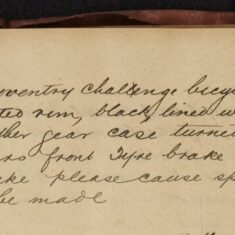 oventry challenge bicyc
ted rim, black, lined w
ther gear case turne
rs front Tyre brake
ke please cause sp
be made